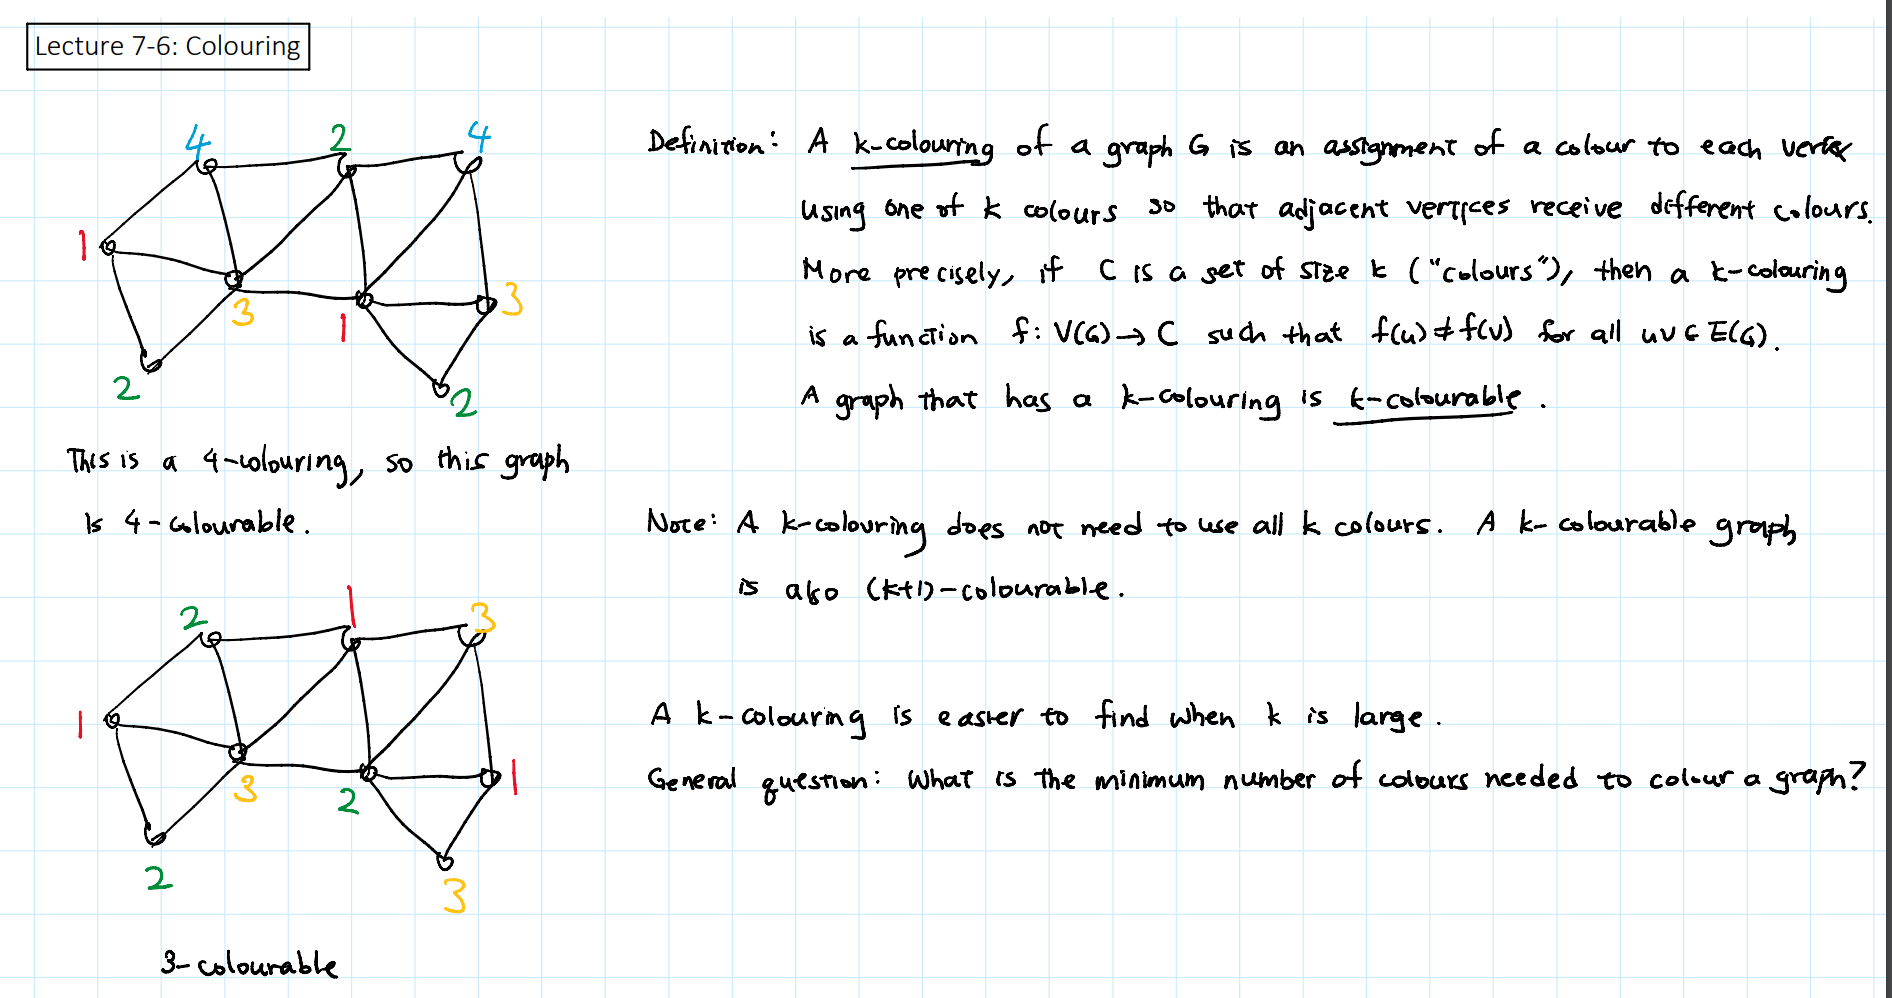 Lecture 7-6: Colouring
4 2 4
1
3 1 3
2 2
This is a 4-colouring, so this graph
is 4-colourable.
2 1 3
1
3 2 1
2 3
3-colourable
Definition: A k-colouring of a graph G is an assignment of a colour to each vertex
using one of k colours so that adjacent vertices receive different colours.
More precisely, if C is a set of size k ("colours"), then a k-colouring
is a function f: V(G) → C such that f(u) ≠ f(v) for all uv ∈ E(G).
A graph that has a k-colouring is k-colourable.
Note: A k-colouring does not need to use all k colours. A k-colourable graph
is also (k+1)-colourable.
A k-colouring is easier to find when k is large.
General question: What is the minimum number of colours needed to colour a graph?